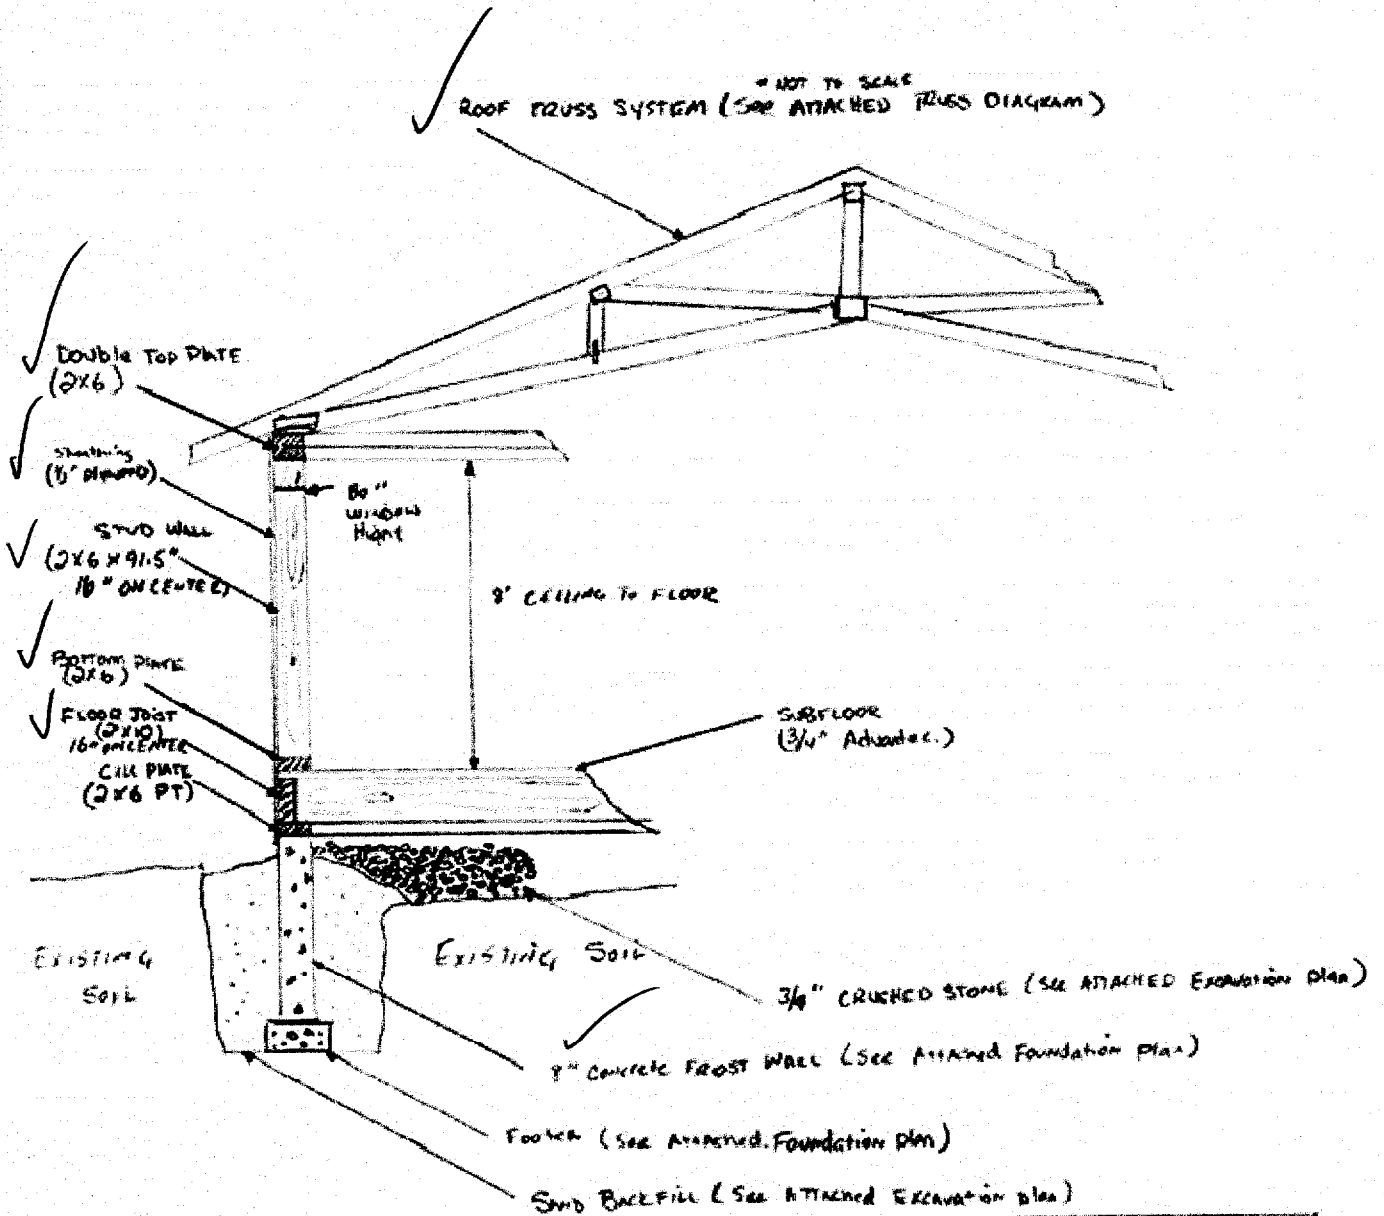 * NOT TO SCALE
ROOF TRUSS SYSTEM (SEE ATTACHED TRUSS DIAGRAM)
Double TOP PLATE
(2X6)
Sheathing
(1/2" PLYWOOD)
80"
WINDOW
Hight
STUD WALL
(2X6 X 91.5"
16" ON CENTER)
8' CEILING TO FLOOR
BOTTOM PLATE
(2X6)
FLOOR JOIST
(2X10)
16" ON CENTER
CILL PLATE
(2X6 PT)
SUBFLOOR
(3/4" Advantec.)
EXISTING
SOIL
EXISTING SOIL
CRUSHED STONE (SEE ATTACHED EXCAVATION plan)
8" Concrete FROST WALL (SEE ATTACHED Foundation plan)
Footer (See Attached Foundation plan)
SAND BACKFILL (See ATTACHED EXCAVATION plan)